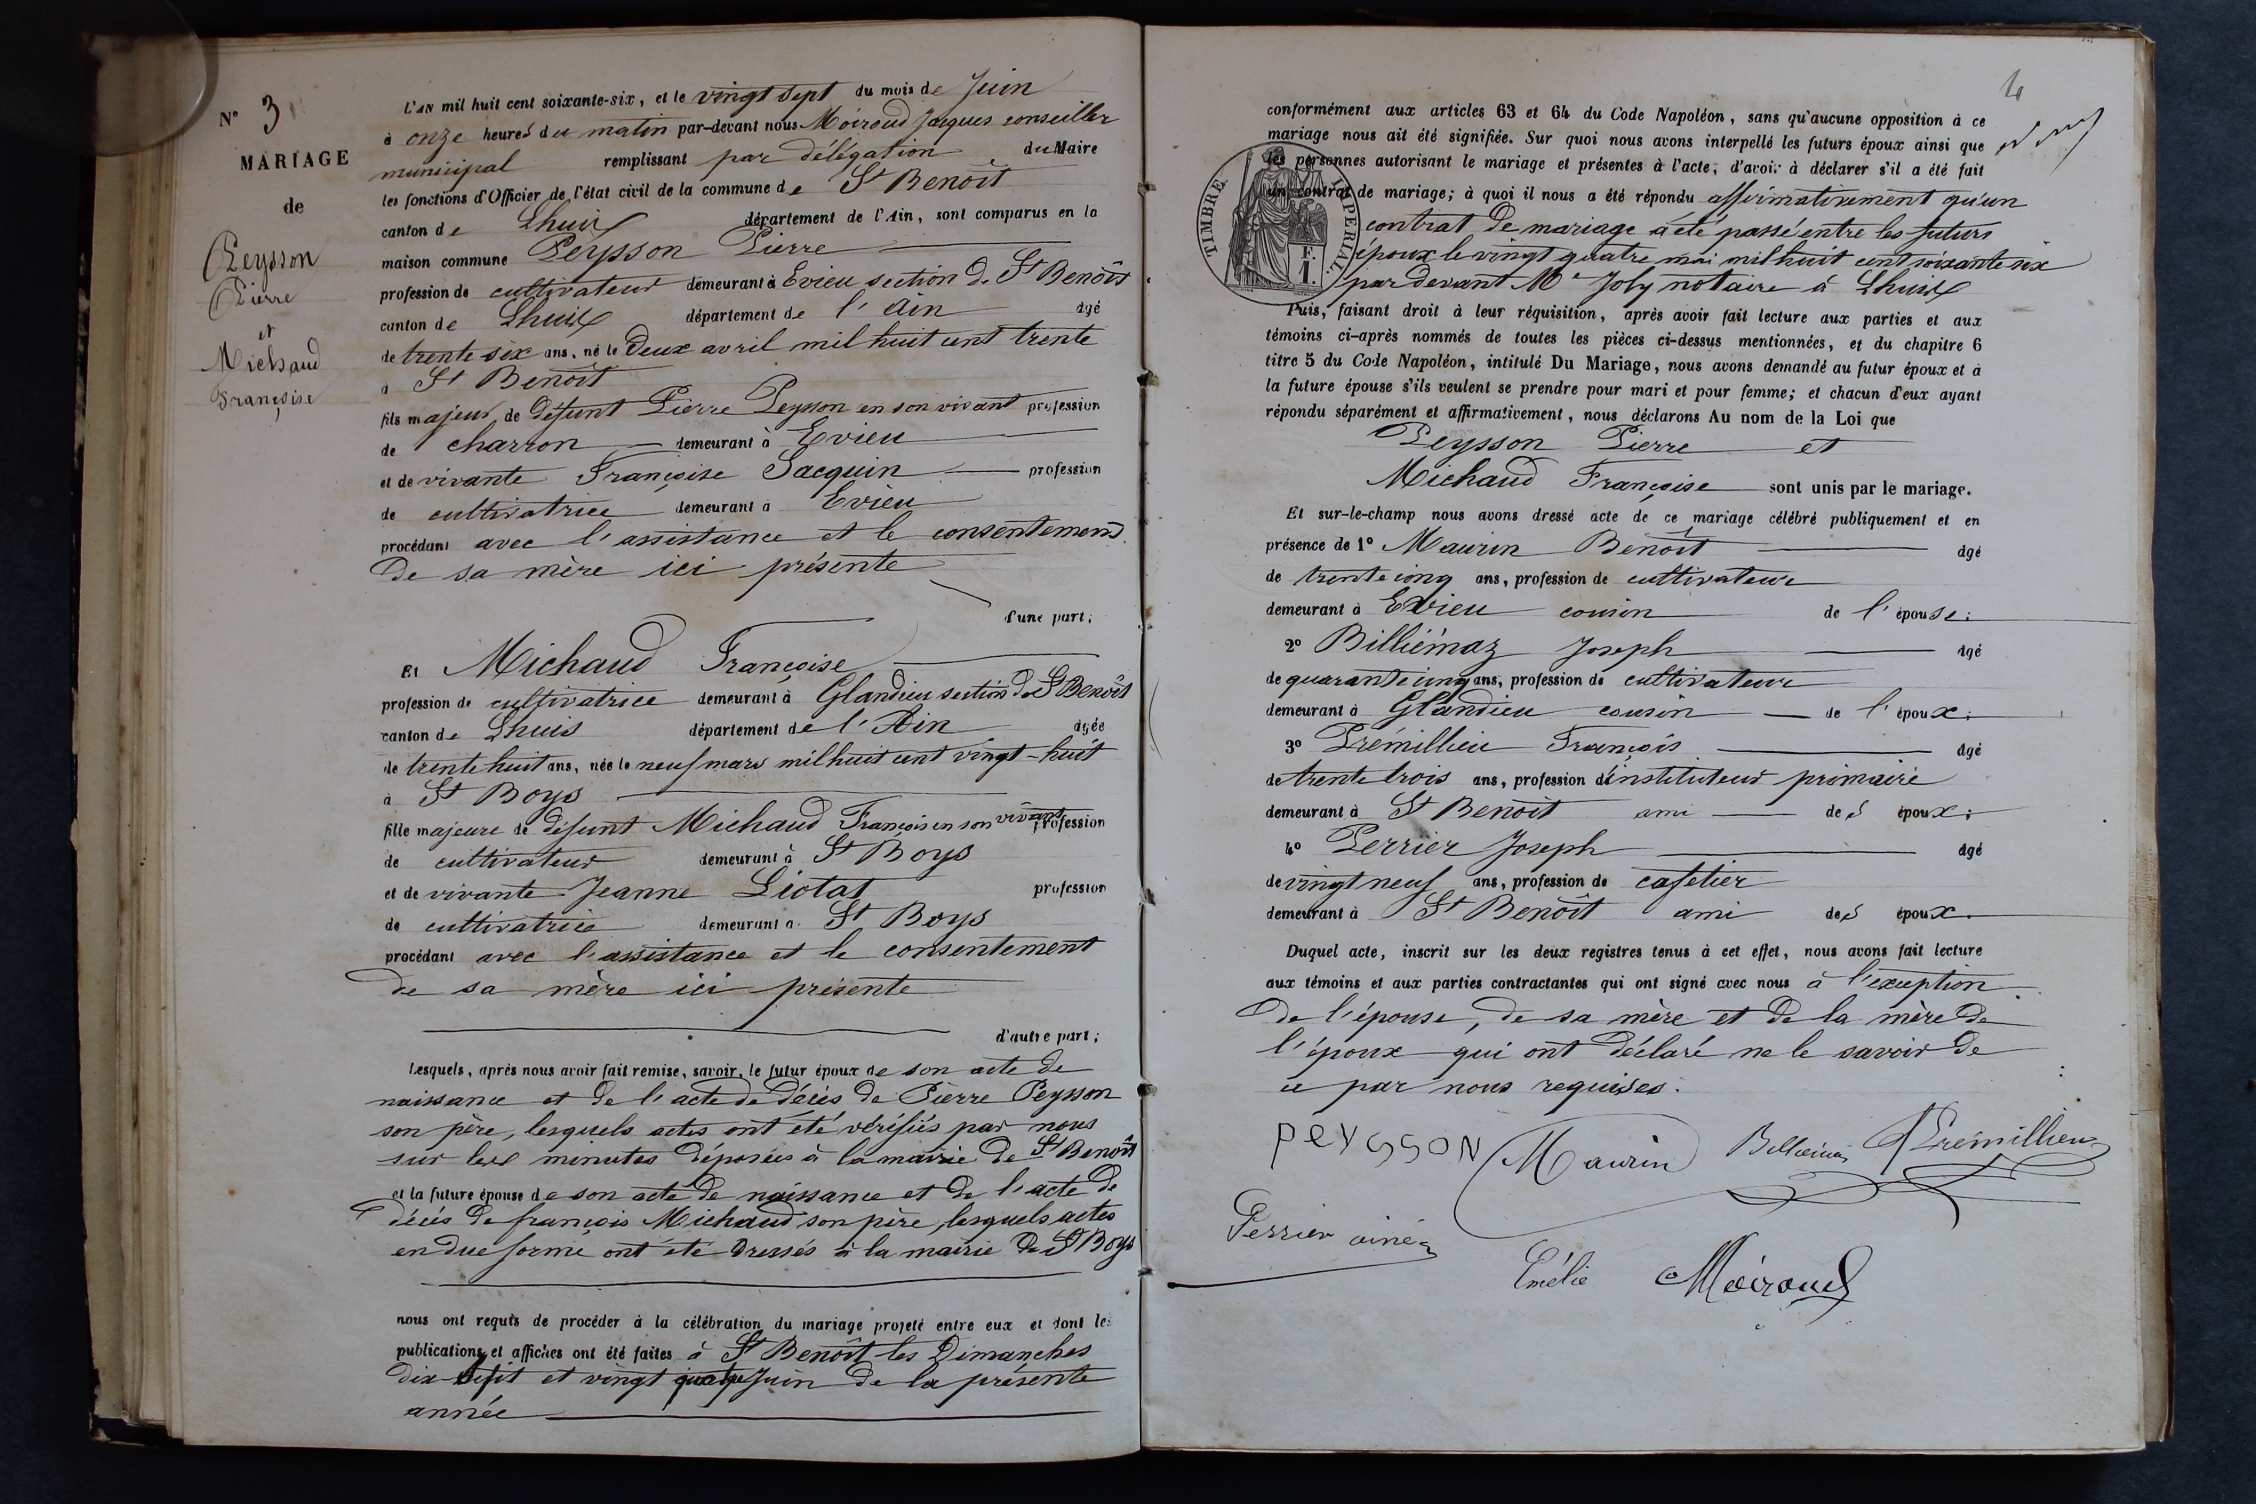 N° 3
MARIAGE
de
Peysson
Pierre
et
Michaud
Françoise
L'AN mil huit cent soixante-six, et le vingt sept du mois de Juin
à onze heures du matin par-devant nous Moiroud Jacques conseiller
municipal remplissant par délégation du Maire
les fonctions d'Officier de l'état civil de la commune de St Benoît
canton de Lhuis département de l'Ain, sont comparus en la
maison commune Peysson Pierre
profession de cultivateur demeurant à Evieu section de St Benoît
canton de Lhuis département de l'Ain âgé
de trente six ans, né le deux avril mil huit cent trente
à St Benoît
fils majeur de défunt Pierre Peysson en son vivant profession
de charron demeurant à Evieu
et de vivante Françoise Jacquin profession
de cultivatrice demeurant à Evieu
procédant avec l'assistance et le consentement
de sa mère ici présente
d'une part;
Et Michaud Françoise
profession de cultivatrice demeurant à Glandieu section de St Benoît
canton de Lhuis département de l'Ain âgée
de trente huit ans, née le neuf mars mil huit cent vingt-huit
à St Boys
fille majeure de défunt Michaud François en son vivant profession
de cultivateur demeurant à St Boys
et de vivante Jeanne Liotat profession
de cultivatrice demeurant à St Boys
procédant avec l'assistance et le consentement
de sa mère ici présente
d'autre part;
Lesquels, après nous avoir fait remise, savoir, le futur époux de son acte de
naissance et de l'acte de décès de Pierre Peysson
son père, lesquels actes ont été vérifiés par nous
sur les minutes déposées à la mairie de St Benoît
et la future épouse de son acte de naissance et de l'acte de
décès de françois Michaud son père, lesquels actes
en due forme ont été dressés à la mairie de St Boys
nous ont requis de procéder à la célébration du mariage projeté entre eux et dont les
publications et affiches ont été faites à St Benoît les Dimanches
dix-sept et vingt quatre Juin de la présente
année
4
conformément aux articles 63 et 64 du Code Napoléon, sans qu'aucune opposition à ce
mariage nous ait été signifiée. Sur quoi nous avons interpellé les futurs époux ainsi que
les personnes autorisant le mariage et présentes à l'acte, d'avoir à déclarer s'il a été fait
un contrat de mariage; à quoi il nous a été répondu affirmativement qu'un
contrat de mariage a été passé entre les futurs
époux le vingt quatre mai mil huit cent soixante six
par devant Me Joly notaire à Lhuis
TIMBRE IMPERIAL
F.
1.
Puis, faisant droit à leur réquisition, après avoir fait lecture aux parties et aux
témoins ci-après nommés de toutes les pièces ci-dessus mentionnées, et du chapitre 6
titre 5 du Code Napoléon, intitulé Du Mariage, nous avons demandé au futur époux et à
la future épouse s'ils veulent se prendre pour mari et pour femme; et chacun d'eux ayant
répondu séparément et affirmativement, nous déclarons Au nom de la Loi que
Peysson Pierre et
Michaud Françoise sont unis par le mariage.
Et sur-le-champ nous avons dressé acte de ce mariage célébré publiquement et en
présence de 1° Maurin Benoît âgé
de trente cinq ans, profession de cultivateur
demeurant à Evieu cousin de l'épouse;
2° Billiémaz Joseph âgé
de quarante cinq ans, profession de cultivateur
demeurant à Glandieu cousin de l'époux;
3° Prémillieu François âgé
de trente trois ans, profession d'instituteur primaire
demeurant à St Benoît ami des époux;
4° Perrier Joseph âgé
de vingt neuf ans, profession de cafetier
demeurant à St Benoît ami des époux.
Duquel acte, inscrit sur les deux registres tenus à cet effet, nous avons fait lecture
aux témoins et aux parties contractantes qui ont signé avec nous à l'exception
de l'épouse, de sa mère et de la mère de
l'époux qui ont déclaré ne le savoir de
ce par nous requises.
PEYSSON Maurin Billiémaz Prémillieu
Perrier ainé
Emélie Moiroud